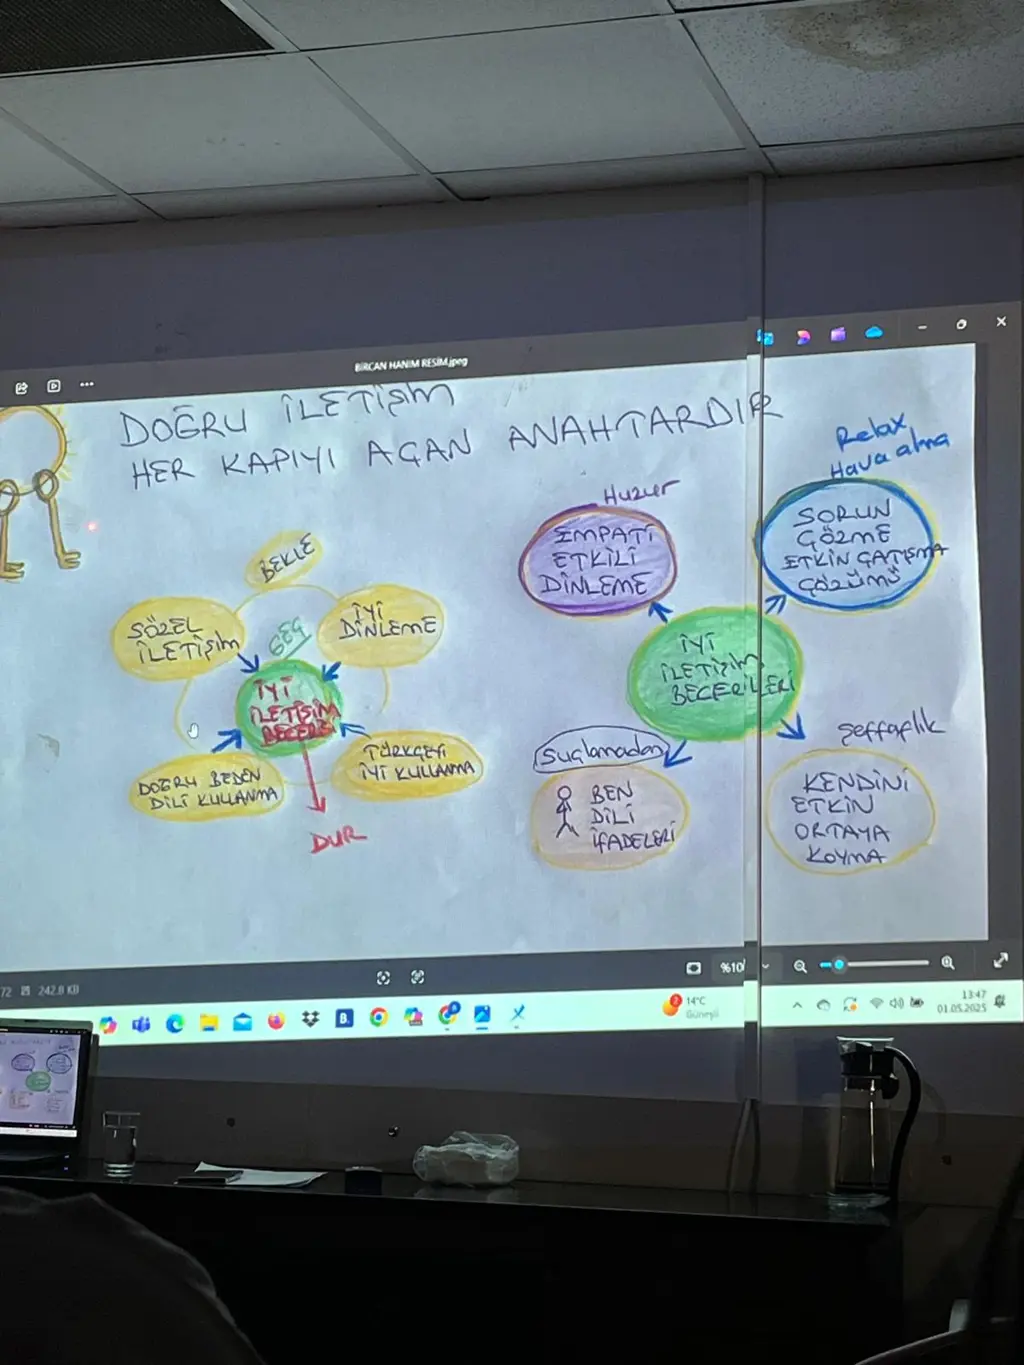 BİRCAN HANIM RESİM.jpeg
DOĞRU İLETİŞİM
HER KAPIYI AÇAN ANAHTARDIR
BEKLE
SÖZEL
İLETİŞİM
GEÇ
İYİ
DİNLEME
İYİ
İLETİŞİM
BECERİSİ
DOĞRU BEDEN
DİLİ KULLANMA
TÜRKÇEYİ
İYİ KULLANMA
DUR
Huzur
EMPATİ
ETKİLİ
DİNLEME
Relax
Hava alma
SORUN
ÇÖZME
ETKİN ÇATIŞMA
ÇÖZÜMÜ
İYİ
İLETİŞİM
BECERİLERİ
Suçlamadan
BEN
DİLİ
İFADELERİ
Şeffaflık
KENDİNİ
ETKİN
ORTAYA
KOYMA
72 242.8 KB
%10
B.
2
14°C
Güneşli
13:47
01.05.2025